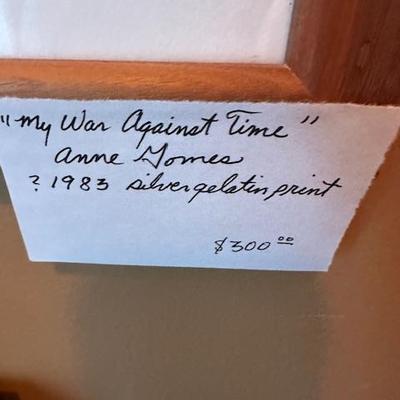 "My War Against Time"
Anne Gomes
? 1983 silver gelatin print
$300.00